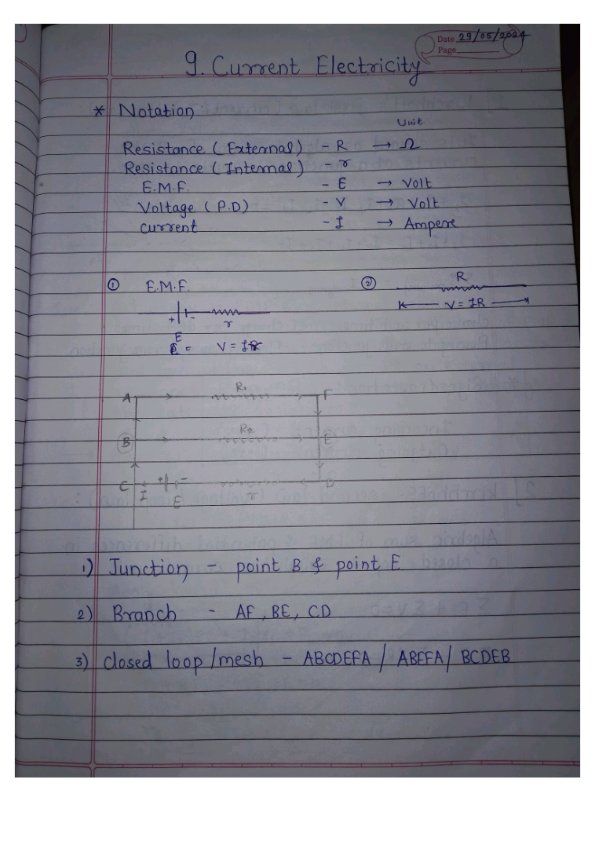 Date 29/05/2024
Page
9. Current Electricity
* Notation
Unit
Resistance (External) - R → Ω
Resistance (Internal) - r
E.M.F. - E → Volt
Voltage (P.D) - V → Volt
current - I → Ampere
① E.M.F.
② R
+ -
r
V = IR
E
V = IR
A R₁ F
B R₂ E
C I + - E r D
1) Junction - point B & point E
2) Branch - AF, BE, CD
3) closed loop/mesh - ABCDEFA / ABEFA / BCDEB